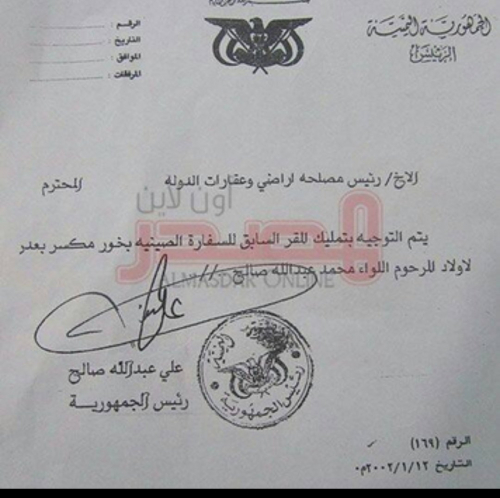 الجمهورية اليمنية
الرئيس
الرقم :
التاريخ :
الموافق :
المرفقات :
الاخ/ رئيس مصلحه اراضي وعقارات الدوله المحترم
اون لاين
المصدر
ALMASDAR ONLINE
يتم التوجيه بتمليك المقر السابق للسفارة الصينيه بخور مكسر بعدن
لاولاد المرحوم اللواء محمد عبدالله صالح //
علي عبدالله صالح
رئيس الجمهورية
رئيس الجمهورية
الرقم (١٦٩)
التاريخ ٢٠٠٢/١/١٢م٠